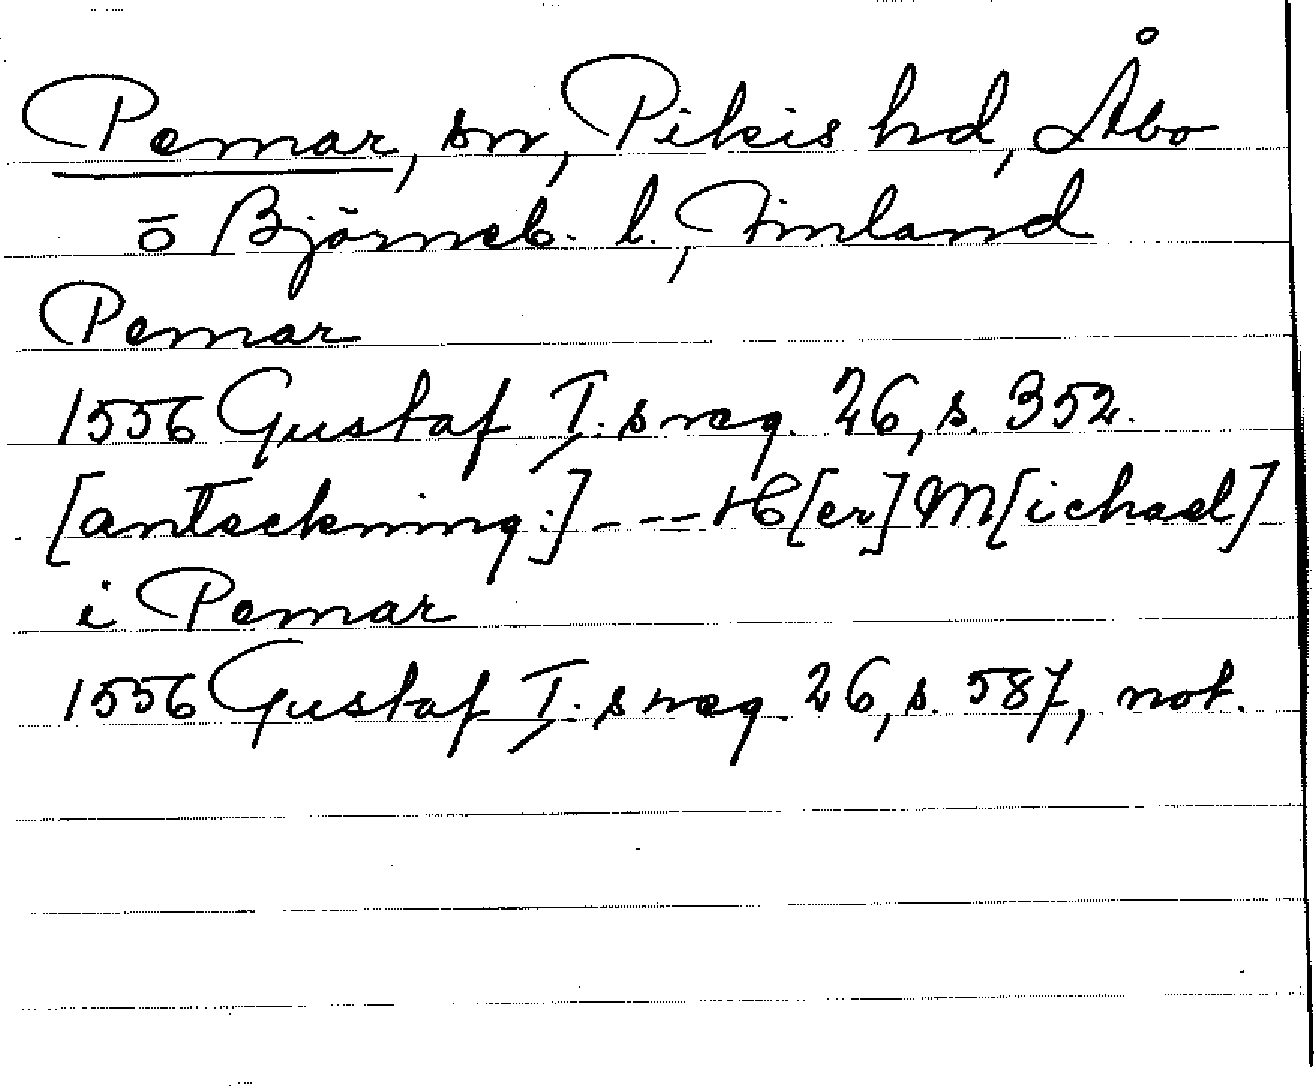 Pemar, sn, Pikis hd, Åbo
o Björneb. l., Finland
Pemar
1556 Gustaf I:s reg. 26, s. 352.
[anteckning:] --- H[er] M[ichael]
i Pemar
1556 Gustaf I:s reg. 26, s. 587, not.